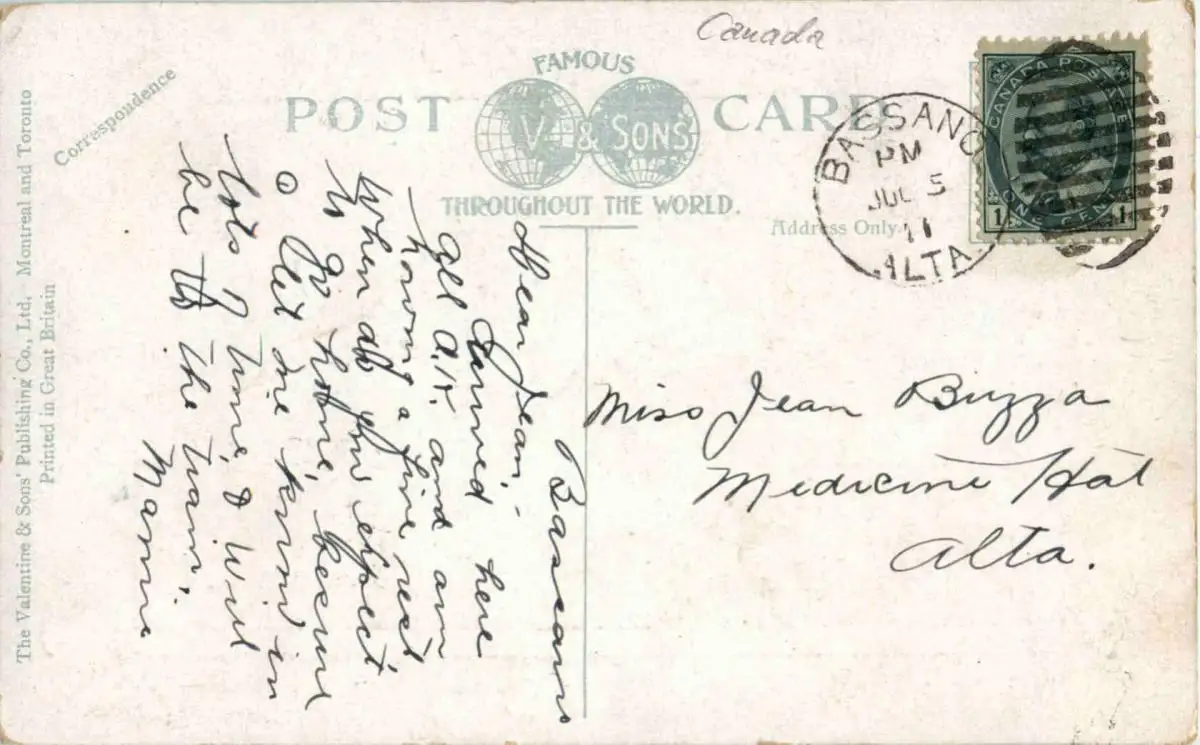 Canada
FAMOUS
POST CARD
V. & SONS
THROUGHOUT THE WORLD.
Correspondence
Address Only.
The Valentine & Sons' Publishing Co., Ltd. Montreal and Toronto
Printed in Great Britain
BASSANO
PM
JUL 5
11
ALTA
CANADA POSTAGE
1 ONE CENT 1
Bassano
Dear Jean,-
Arrived here
all O.K. and am
having a fine rest
When do you expect
to go home, be sure
& let me know in
lots of time, & will
be to the train.
Mamie
Miss Jean Buzza
Medicine Hat
Alta.